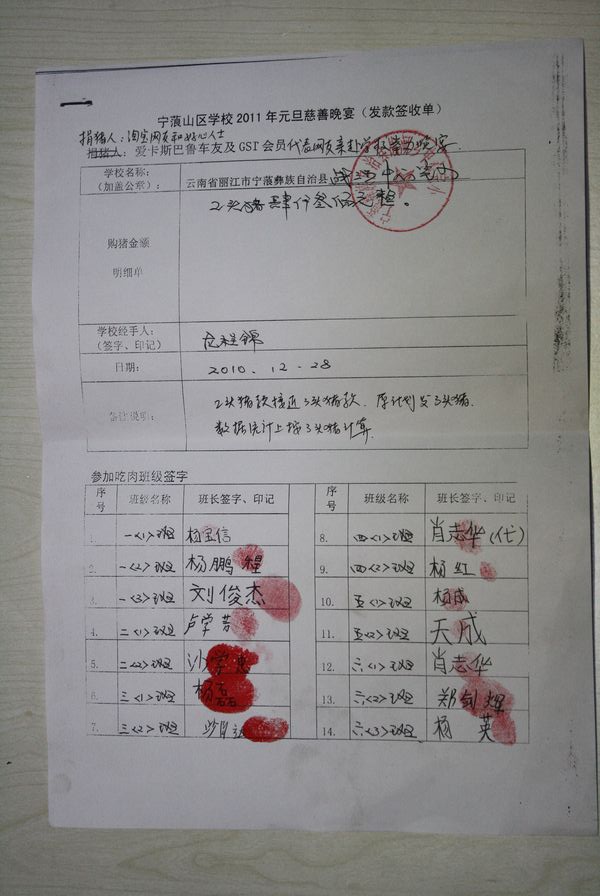 宁蒗山区学校 2011 年元旦慈善晚宴（发款签收单）
捐猪人：淘宝网友和好心人士
捐猪人：爱卡斯巴鲁车友及 GSI 会员代表网友亲赴学校
学校名称：
（加盖公章）：
云南省丽江市宁蒗彝族自治县
购猪金额
明细单
2头猪肆仟叁佰元
学校经手人：
（签字、印记）
日期：
2010.12.28
备注说明：
2头猪款接近3头猪款．原计划发3头猪．
数据统计上按3头猪计算．
参加吃肉班级签字
序号 班级名称 班长签字、印记 序号 班级名称 班长签字、印记
1. 一〈1〉班 杨宝信 8. 四〈1〉班 肖志华（代）
2. 一〈2〉班 杨鹏程 9. 四〈2〉班 杨红
3. 一〈3〉班 刘俊杰 10. 五〈1〉班 杨成
4. 二〈1〉班 卢学 11. 五〈2〉班 天成
5. 二〈2〉班 沙学忠 12. 六〈1〉班 肖志华
6. 三〈1〉班 杨磊 13. 六〈2〉班 郑剑辉
7. 三〈2〉班 14. 六〈3〉班 杨英